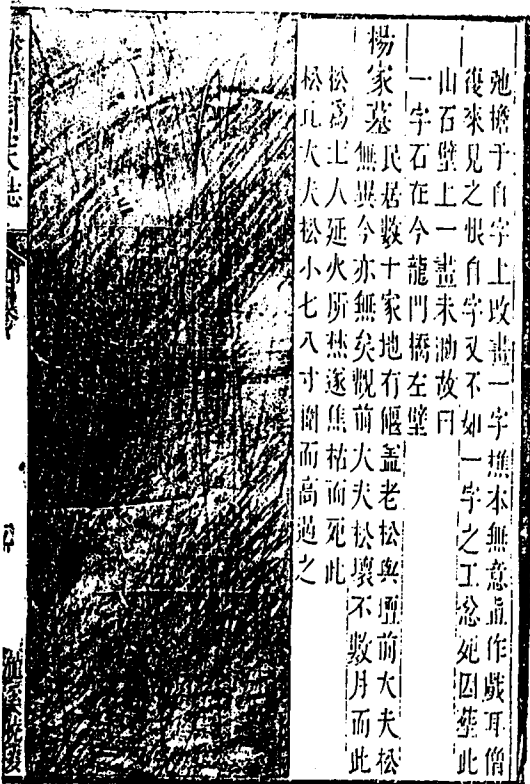 弛擔于自字上改畫一字樵本無意直作戲耳僧
復來見之恨自字又不如一字之工忿死因葬此
山石壁上一畫未泐故曰
一字石在今龍門橋左壁
楊家墓民居數十家地有偃蓋老松與壇前大夫松
無異今亦無矣觀前大夫松壞不數月而此
松為土人延火所焚遂焦枯而死此
松比大夫松小七八寸圍而高過之